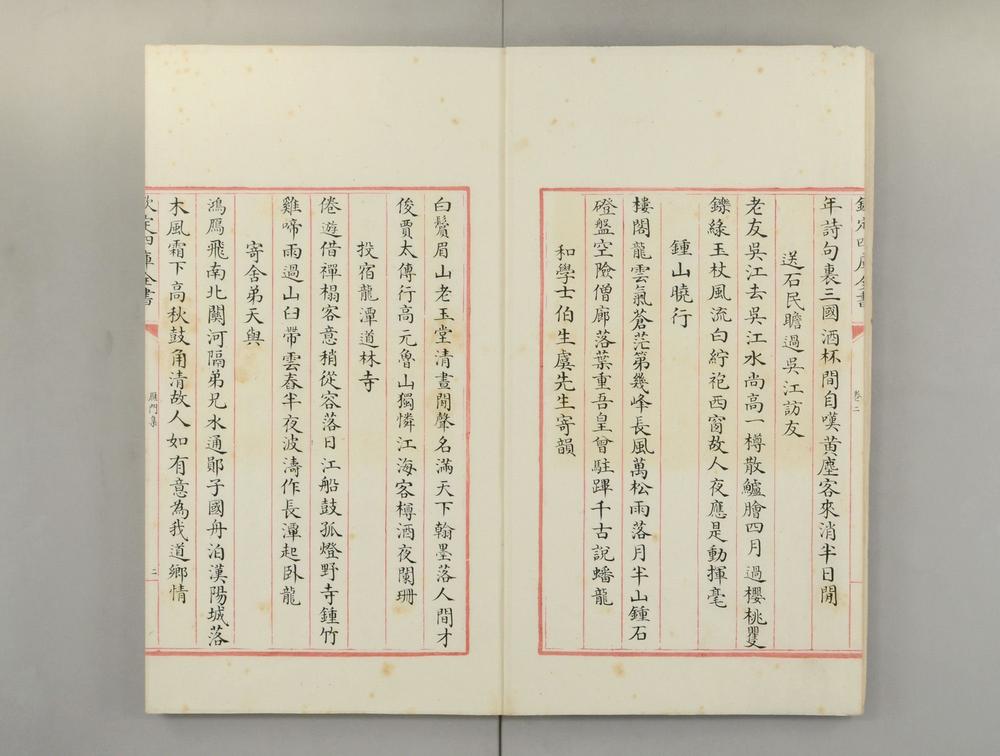 欽定四庫全書
卷二
年詩句裏三國酒杯間自嘆黄塵客來消半日閒
送石民瞻過吳江訪友
老友吳江去吳江水尚高一樽散鱸膾四月過櫻桃矍
鑠緑玉杖風流白紵袍西窗故人夜應是動揮毫
鍾山曉行
樓閣龍雲氣蒼茫第幾峰長風萬松雨落月半山鍾石
磴盤空險僧廊落葉重吾皇曾駐蹕千古説蟠龍
和學士伯生虞先生寄韻
白鬢眉山老玉堂清晝閒聲名滿天下翰墨落人間才
俊賈太傅行高元魯山獨憐江海客樽酒夜闌珊
投宿龍潭道林寺
倦遊借禪榻客意稍從容落日江船鼓孤燈野寺鍾竹
雞啼雨過山臼帶雲舂半夜波濤作長潭起卧龍
寄舍弟天與
鴻鴈飛南北關河隔弟兄水通鄖子國舟泊漢陽城落
木風霜下高秋鼓角清故人如有意為我道鄉情
欽定四庫全書
雁門集
二